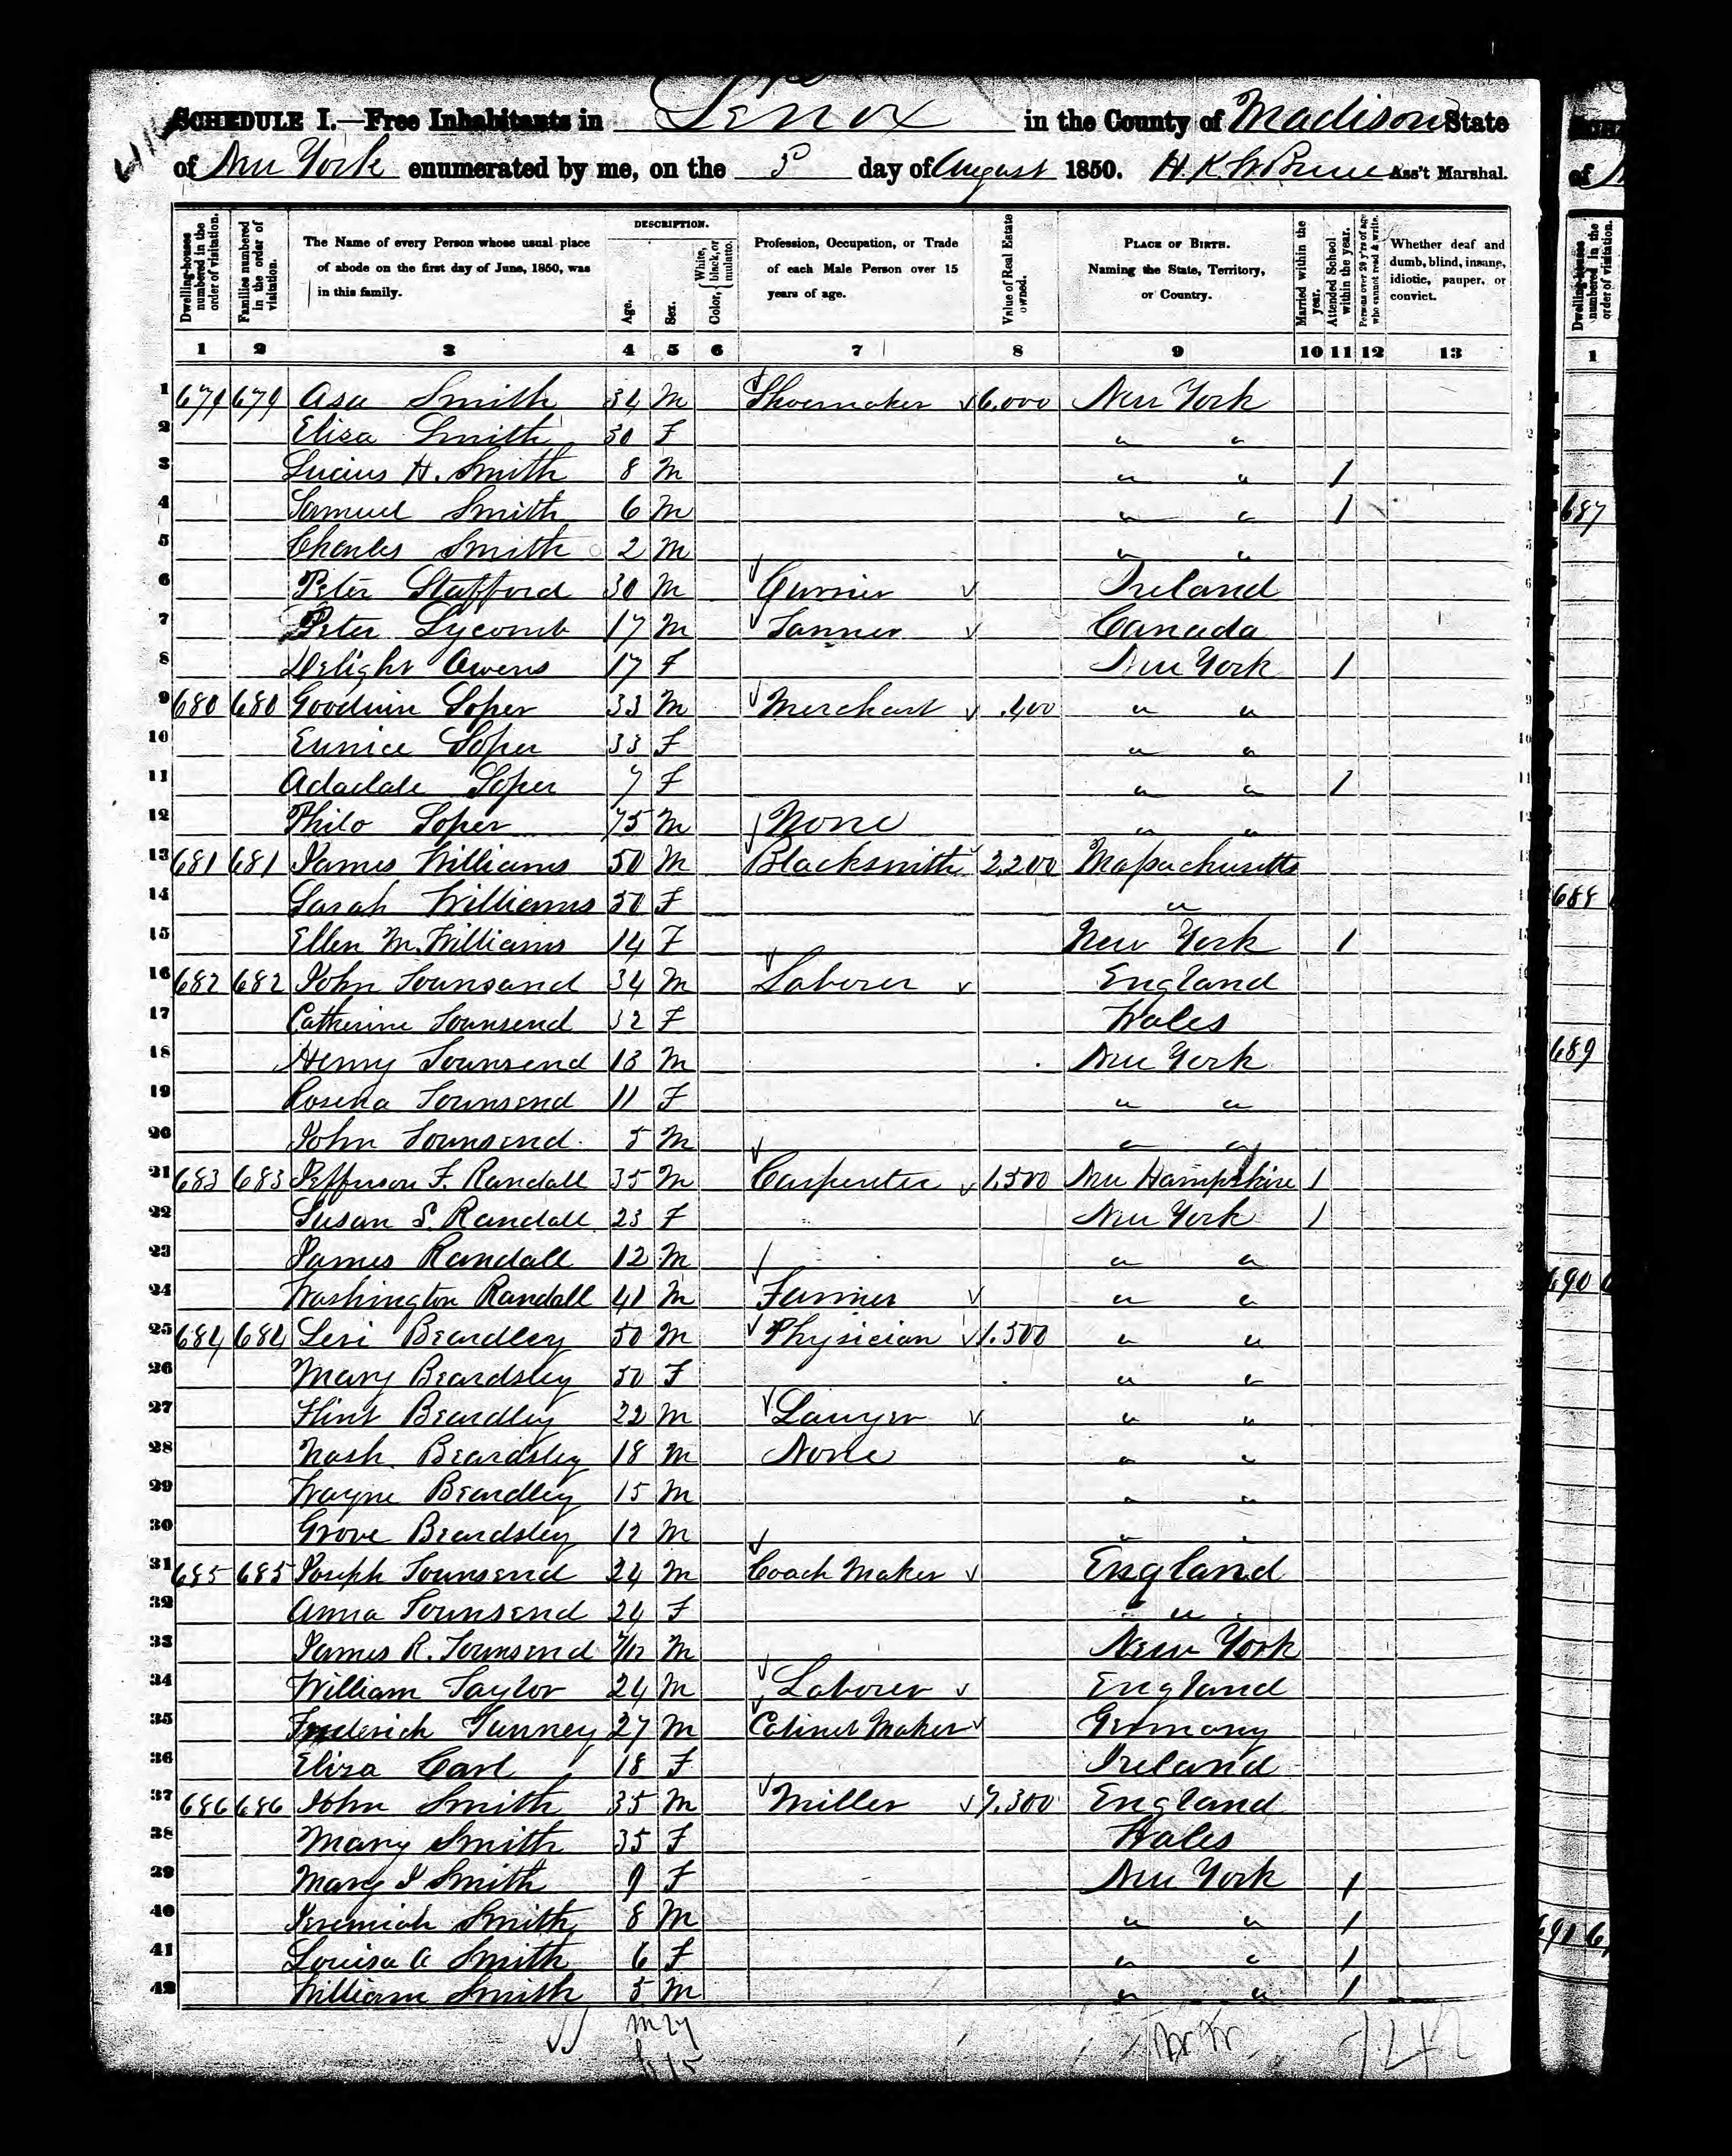 SCHEDULE I.—Free Inhabitants in Lenox in the County of Madison State
of New York enumerated by me, on the 3 day of August 1850. Ass't Marshal.
Dwelling-houses numbered in the order of visitation.
Families numbered in the order of visitation.
The Name of every Person whose usual place of abode on the first day of June, 1850, was in this family.
DESCRIPTION.
Age.
Sex.
Color, { White, black, or mulatto.
Profession, Occupation, or Trade of each Male Person over 15 years of age.
Value of Real Estate owned.
PLACE OF BIRTH. Naming the State, Territory, or Country.
Married within the year.
Attended School within the year.
Persons over 20 y'rs of age who cannot read & write.
Whether deaf and dumb, blind, insane, idiotic, pauper, or convict.
1 2 3 4 5 6 7 8 9 10 11 12 13
1 679 679 Asa Smith 34 M Shoemaker 6.000 New York
2 Eliza Smith 30 F " "
3 Lucius H. Smith 8 M " " 1
4 Samuel Smith 6 M " " 1
5 Charles Smith 2 M " "
6 Peter Stafford 30 M Currier Ireland
7 Peter Lycomb 17 M Tanner Canada
8 Delight Owens 17 F New York 1
9 680 680 Goodwin Soper 33 M Merchant .400 " "
10 Eunice Soper 33 F " "
11 Adadale Soper 7 F " " 1
12 Philo Soper 75 M None " "
13 681 681 James Williams 50 M Blacksmith 2.200 Massachusetts
14 Sarah Williams 50 F "
15 Ellen M. Williams 14 F New York 1
16 682 682 John Townsand 34 M Laborer England
17 Catherine Townsend 32 F Wales
18 Henry Townsend 13 M New York
19 Rosena Townsend 11 F " "
20 John Townsend 5 M " "
21 683 683 Jefferson F. Randall 35 M Carpenter 1.500 New Hampshire 1
22 Susan S. Randall 23 F New York 1
23 James Randall 12 M " "
24 Washington Randall 41 M Farmer " "
25 684 684 Levi Beardley 50 M Physician 1.500 " "
26 Mary Beardsley 50 F " "
27 Flint Beardley 22 M Lawyer " "
28 Nash Beardsley 18 M None " "
29 Wayne Beardley 15 M " "
30 Grove Beardsley 12 M " "
31 685 685 Joseph Townsend 24 M Coach Maker England
32 Anna Townsend 24 F "
33 James R. Townsend M New York
34 William Taylor 24 M Laborer England
35 Frederich Tunney 27 M Cabinet Maker Germany
36 Eliza Carl 18 F Ireland
37 686 686 John Smith 35 M Miller 7.300 England
38 Mary Smith 35 F Wales
39 Mary J Smith 9 F New York 1
40 Jeremiah Smith 8 M " " 1
41 Louisa A Smith 6 F " " 1
42 William Smith 5 M " " 1
m 27
f 15
Dwelling-houses numbered in the order of visitation.
1
687
688
689
690
691